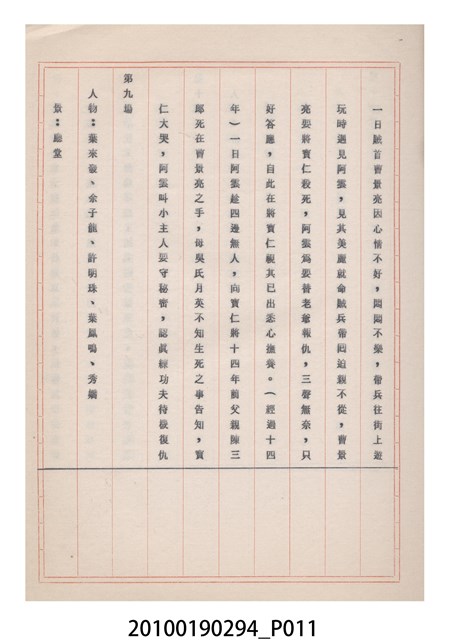 一日賊首曹景亮因心情不好,悶悶不樂,帶兵往街上遊
玩時遇見阿雲,見其美麗就命賊兵帶回迫親不從,曹景
亮要將寶仁殺死,阿雲為要替老爺報仇,三聲無奈,只
好答應,自此在將寶仁視其已出悉心撫養。(經過十四
年)一日阿雲趁四邊無人,向寶仁將十四年前父親陳三
郎死在曹景亮之手,母吳氏月英不知生死之事告知,寶
仁大哭,阿雲叫小主人要守秘密,認眞練功夫待機復仇
第九場
人物:葉來發、余子龍、許明珠、葉鳳鳴、秀娟
景:廳堂
20100190294_P011